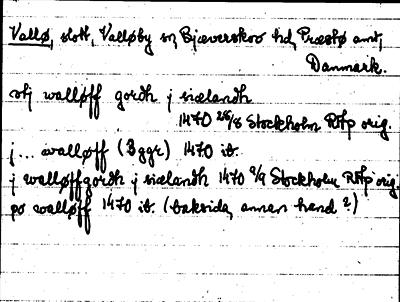 Vallø, slott, Valløby sn, Bjæverskov hd, Præstø amt,
Danmark.
vtj walløff gordh j siælandh
1470 28/8 Stockholm RApp orig.
j... walløff (3 ggr) 1470 it.
j walløffgordh j siælandh 1470 9/9 Stockholm RApp orig.
po walløff 1470 it. (baksida, annan hand?)